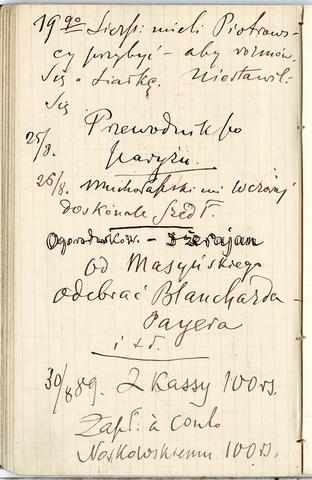 19go Sierp: mieli Piotrows-
cy przybyć – aby rozmów.
się o siatkę. Niestawili
się
25/8. Przewodnik po
Paryżu.
26/8. Muchołapski mi wczoraj
doskonale szedł.
Ogorodników. – Dżerajan
Od Masyńskiego
odebrać Blancharda
Payera
i t d.
30/8 89. Z Kassy 100 rs.
Zapł: à conto
Noskowskiemu 100 rs.